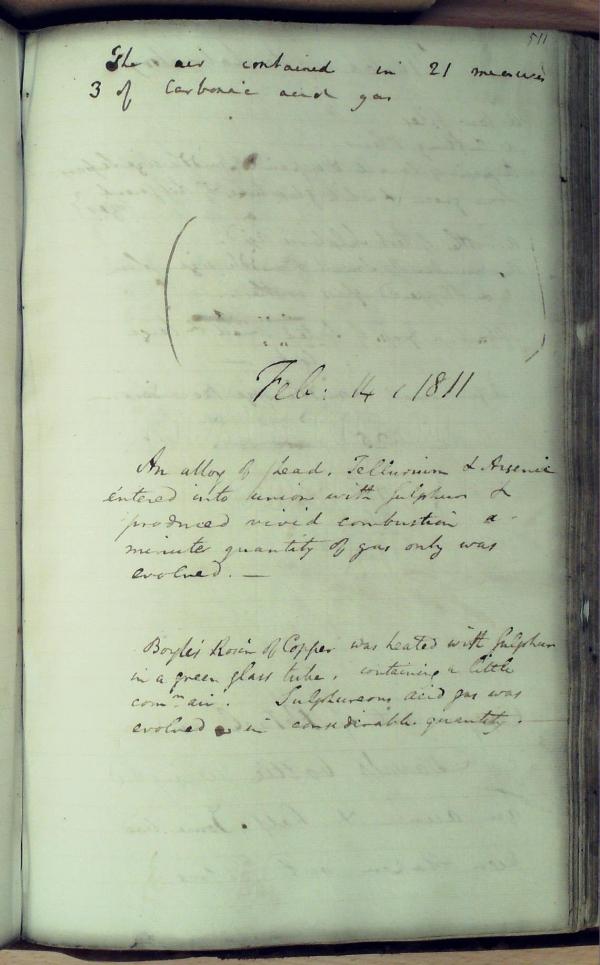 511
The air contained in 21 measures
3 of Carbonic acid gas
Feb: 14 1811
An alloy of Lead, Tellurium & Arsenic
entered into union with Sulphur &
produced vivid combustion a
minute quantity of gas only was
evolved. —
Boyle's Rosin of Copper was heated with Sulphur
in a green glass tube, containing a little
comm air. Sulphureous acid gas was
evolved in considerable quantity.